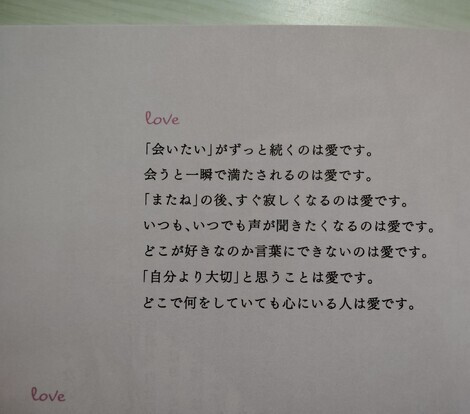 love
「会いたい」がずっと続くのは愛です。
会うと一瞬で満たされるのは愛です。
「またね」の後、すぐ寂しくなるのは愛です。
いつも、いつでも声が聞きたくなるのは愛です。
どこが好きなのか言葉にできないのは愛です。
「自分より大切」と思うことは愛です。
どこで何をしていても心にいる人は愛です。
love